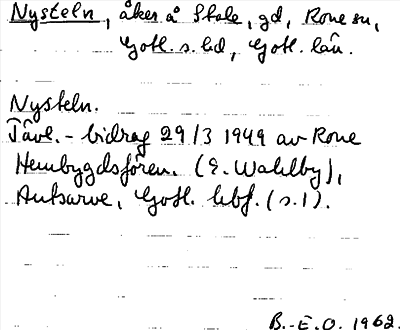 Nysteln, åker å Stale, gd, Rone sn,
Gotl. s. hd, Gotl. län.
Nysteln.
Tävl.-bidrag 29/3 1949 av Rone
Hembygdsfören. (E. Wahlby),
Autsarve, Gotl. hbf. (s.1).
B.-E.O. 1962.